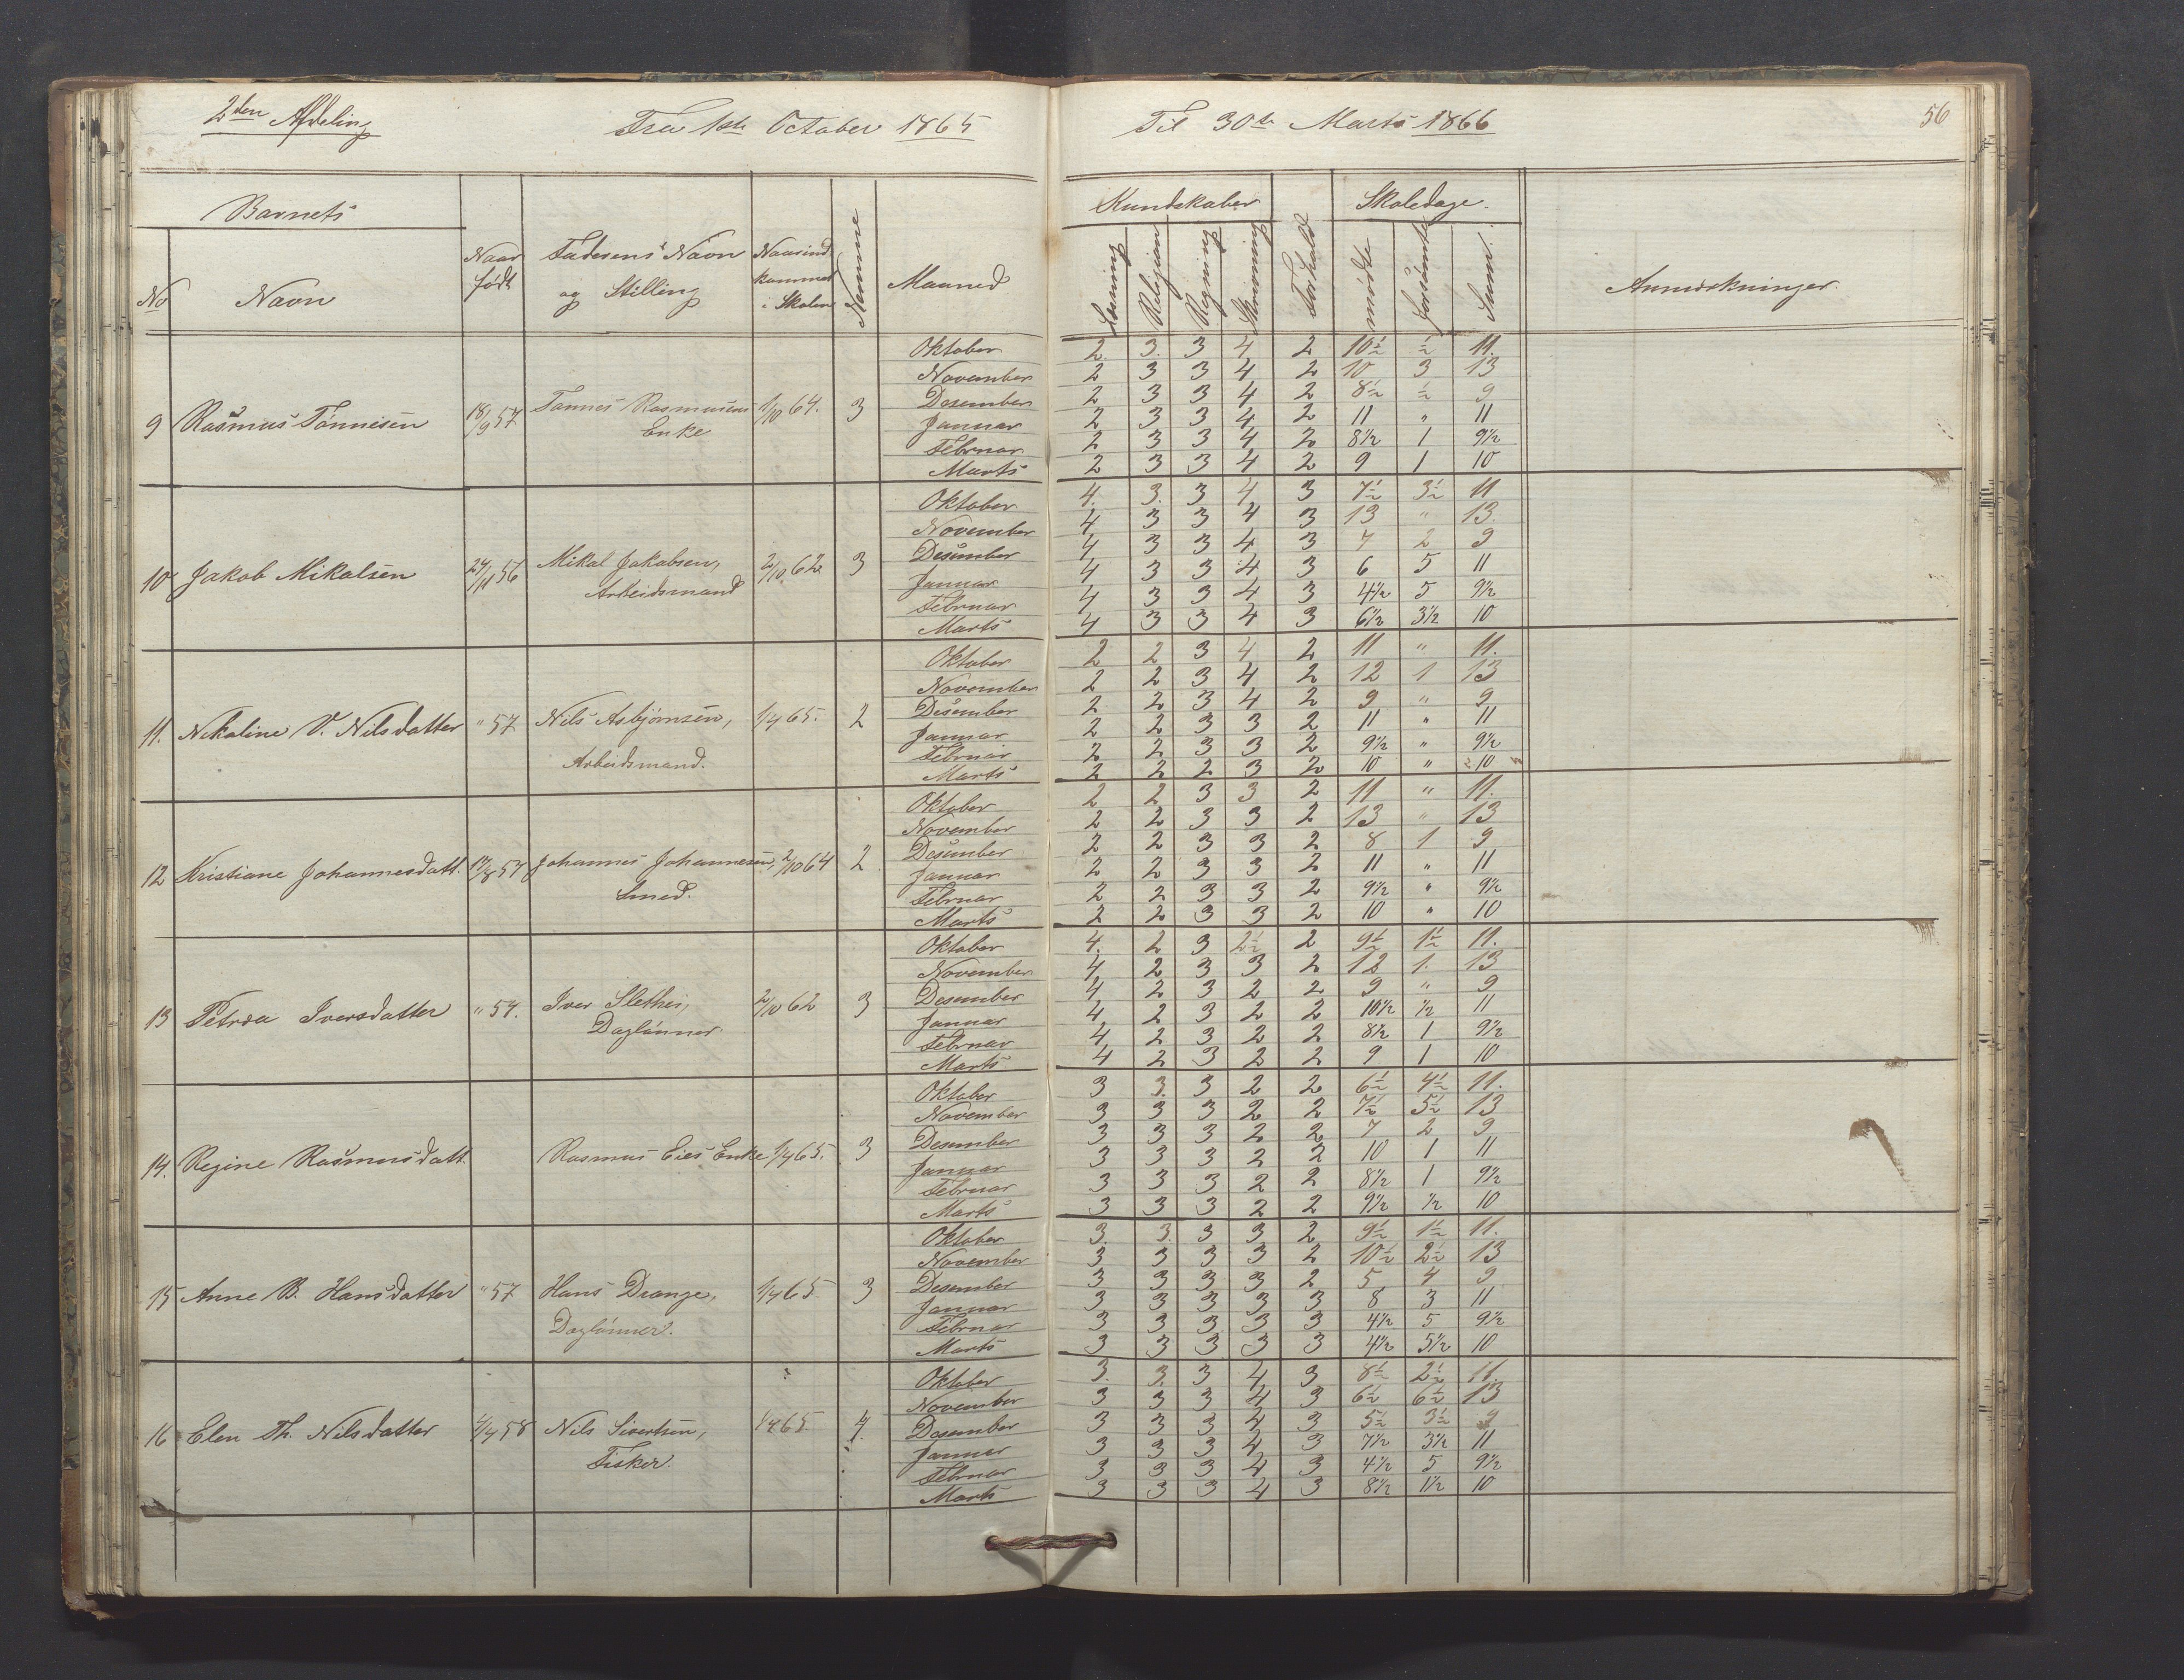 2den Afdeling Fra 1ste October 1865 Til 30te Marts 1866 56
Barnets Kundskaber Skoledage.
No Navn Naar født Faderens Navn og Stilling Naar indkommet i Skolen Nemme Maaned Læsning Religion Regning Skrivning Forhold mødte forsømte Sum. Anmærkninger.
Oktober 2. 3. 3 4 2 10½ ½ 11.
November 2 3 3 4 2 10 3 13
Desember 2 3 3 4 2 8½ ½ 9
9 Rasmus Tønnesen 18/9 57 Tønnes Rasmusens Enke 1/10 64. 3 Januar 2 3 3 4 2 11 " 11
Februar 2 3 3 4 2 8½ 1 9½
Marts 2 3 3 4 2 9 1 10
Oktober 4. 3. 3 4 3 7½ 3½ 11
November 4 3 3 4 3 13 " 13.
Desember 4 3 3 4 3 7 2 9
10 Jakob Mikalsen 24/11 56 Mikal Jakobsen, Arbeidsmand 2/10 62 3 Januar 4 3 3 4 3 6 5 11
Februar 4 3 3 4 3 4½ 5 9½
Marts 4 3 3 4 3 6½ 3½ 10
Oktober 2 2 3 4 2 11 " 11.
November 2 2 3 4 2 12 1 13
Desember 2 2 3 4 2 9 " 9
11. Nikoline V. Nilsdatter " 57 Nils Asbjørnsen, Arbeidsmand. 1/4 65. 2 Januar 2 2 3 3 2 11 " 11
Februar 2 2 3 3 2 9½ " 9½
Marts 2 2 2 3 2 10 " 10
Oktober 2 2 3 3 2 11 " 11.
November 2 2 3 3 2 13 " 13
Desember 2 2 3 3 2 8 1 9
12 Kristiane Johannesdatt. 17/8 57 Johannes Johannesen, Smed. 2/10 64 2 Januar 2 2 3 3 2 11 " 11
Februar 2 2 3 3 2 9½ " 9½
Marts 2 2 3 3 2 10 " 10
Oktober 4. 2 3 2½ 2 9½ 1½ 11.
November 4 2 3 3 2 12 1. 13
Desember 4 2 3 2 2 9 " 9
13 Petrea Iversdatter " 57. Iver Slethei, Daglønner 2/10 62 3 Januar 4 2 3 2 2 10½ ½ 11
Februar 4 2 3 2 2 8½ 1 9½
Marts 4 2 3 2 2 9 1 10
Oktober 3 3. 3 2 2 6½ 4½ 11.
November 3 3 3 2 2 7½ 5½ 13
Desember 3 3 3 2 2 7 2 9
14. Regine Rasmusdatt. Rasmus Eies Enke 1/4 65. 3 Januar 3 3 3 2 2 10 1 11
Februar 3 3 3 2 2 8½ 1 9½
Marts 3 3 3 2 2 9½ ½ 10
Oktober 3. 3. 3 3 2 9½ 1½ 11.
November 3 3 3 3 2 10½ 2½ 13
Desember 3 3 3 3 2 5 4 9
15 Anne B. Hansdatter " 57 Hans Drange, Daglønner. 1/4 65 3 Januar 3 3 3 3 3 8 3 11
Februar 3 3 3 3 3 4½ 5 9½
Marts 3 3 3 3 3 4½ 5½ 10
Oktober 3. 3. 3 4 3 8½ 2½ 11.
November 3 3 3 4 3 6½ 6½ 13
Desember 3 3 3 4 3 5½ 3½ 9
16 Elen Th. Nilsdatter 4/4 58 Nils Sivertsen, Fisker. 1/4 65 4. Januar 3 3 3 4 3 7½ 3½ 11
Februar 3 3 3 4 3 4½ 5 9½
Marts 3 3 3 4 3 8½ 1½ 10